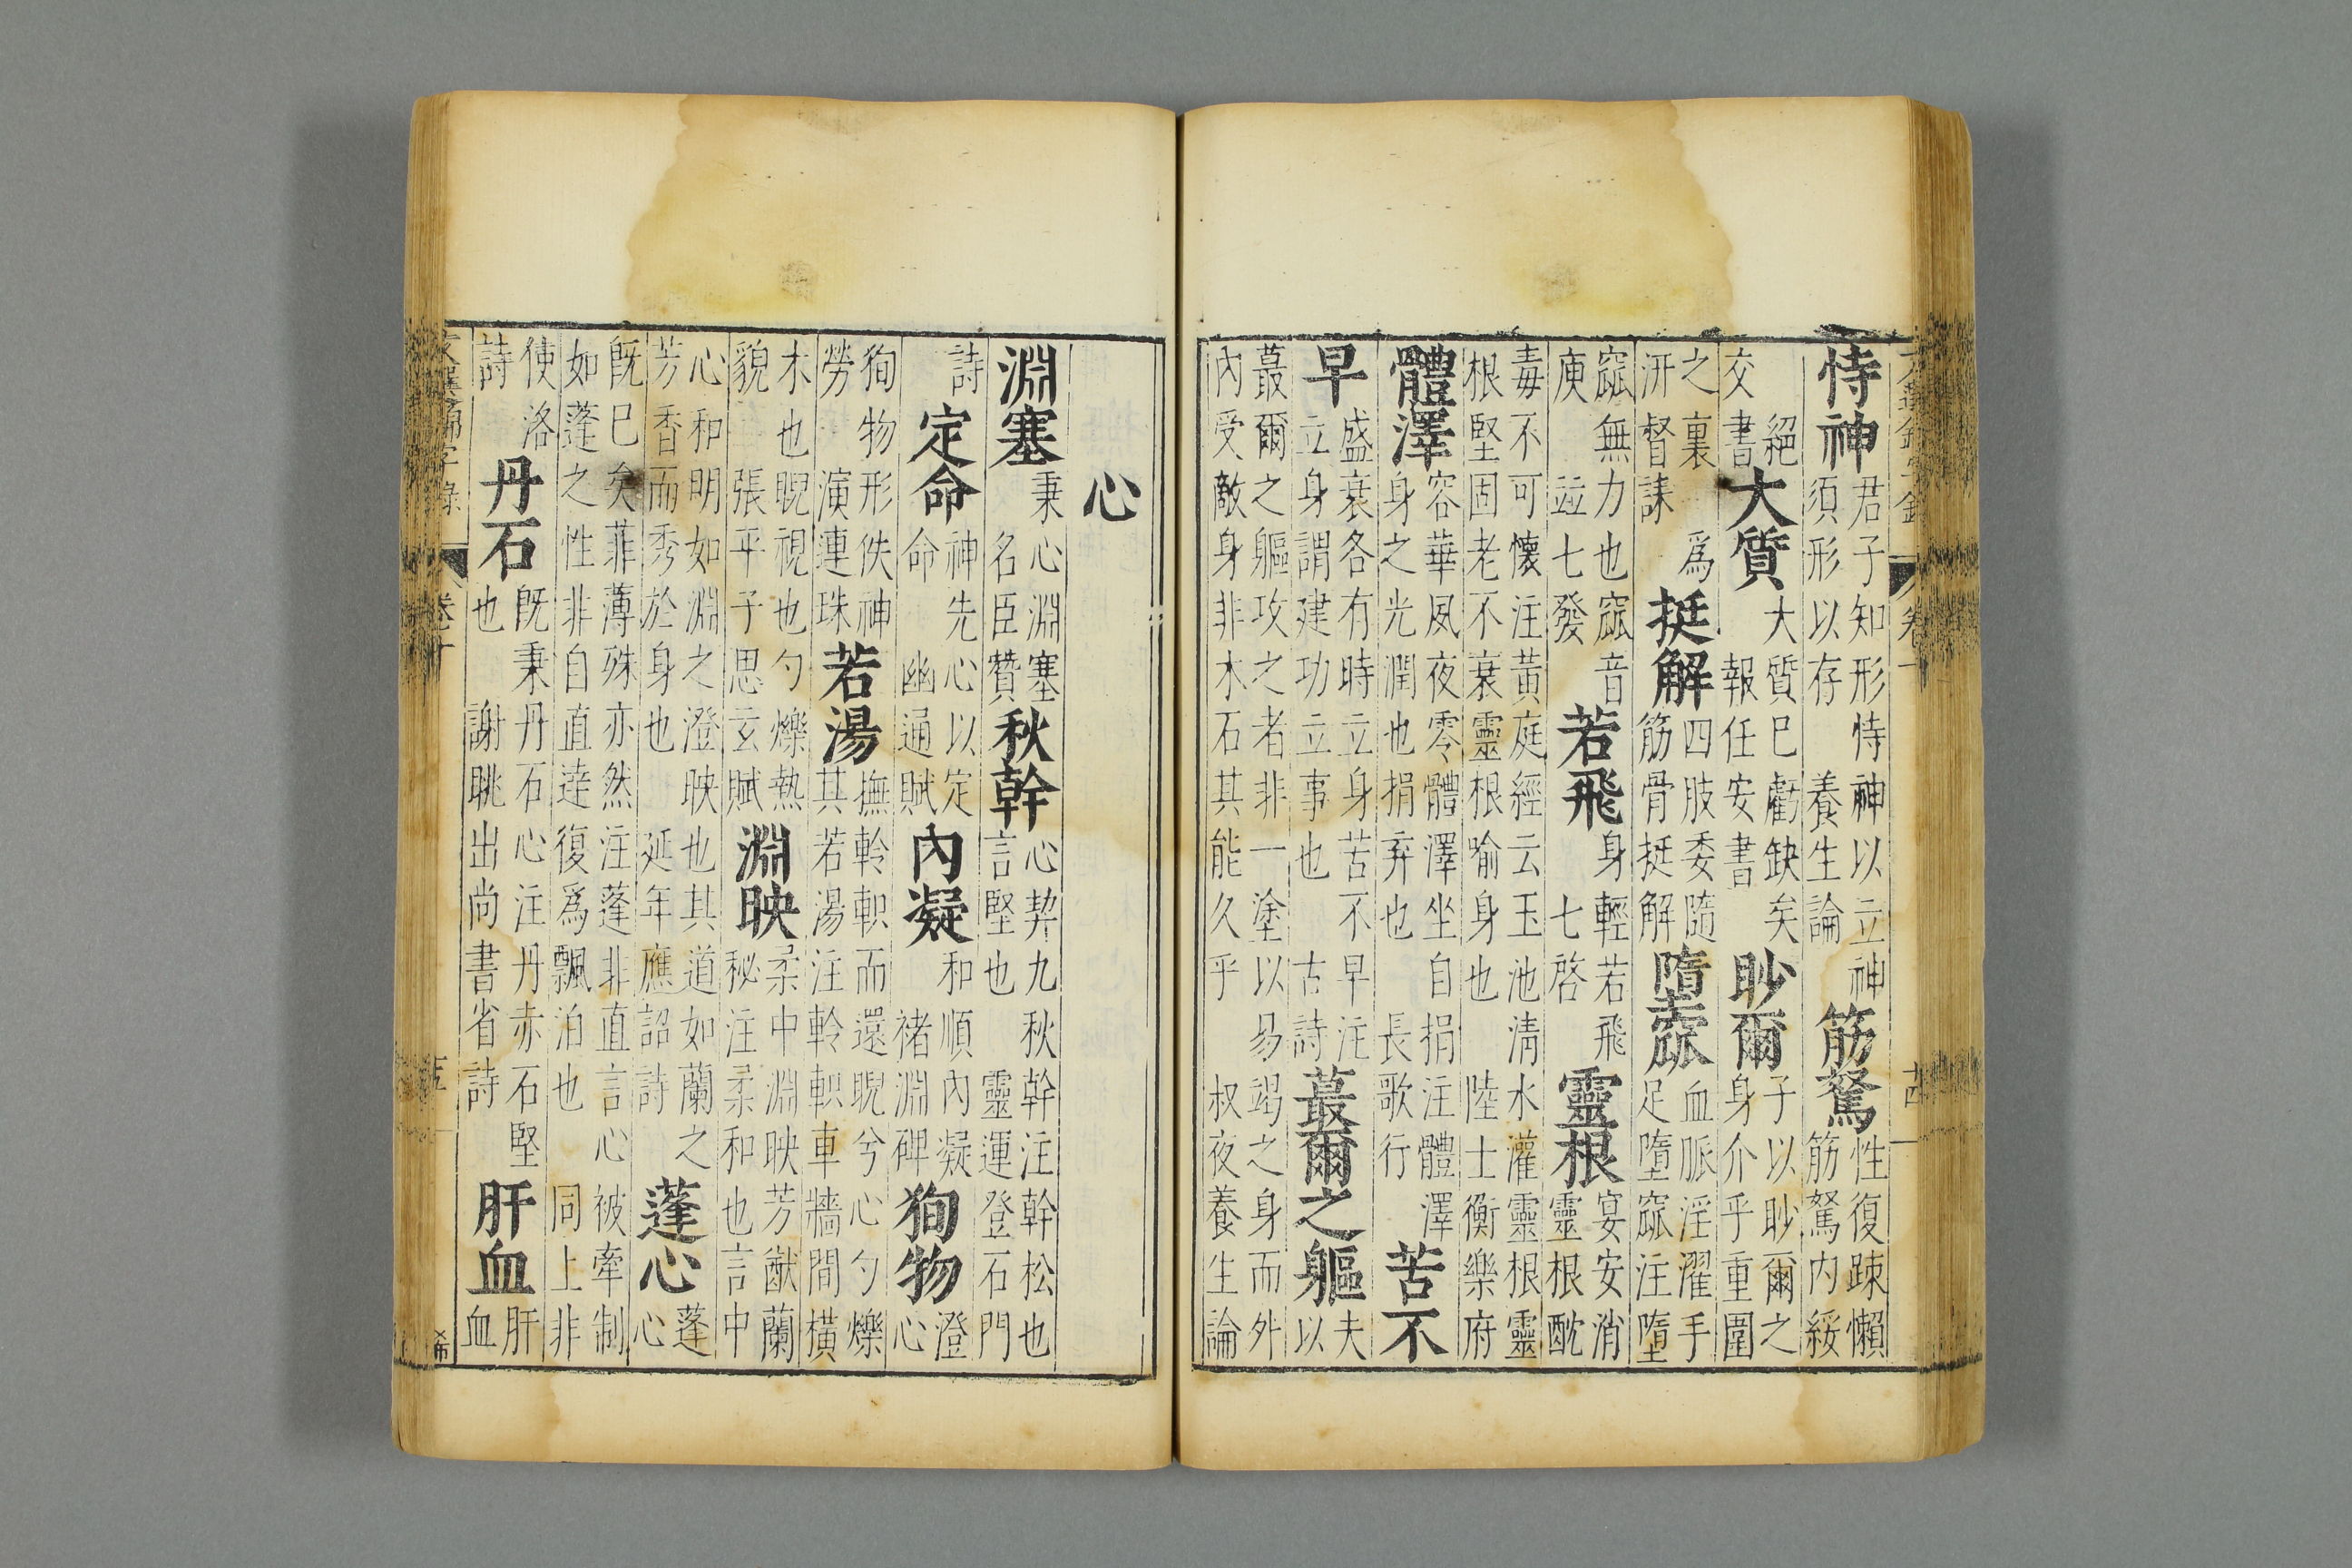 恃神君子知形恃神以立神須形以存養生論筋駑性復踈懶筋駑内綏
絕交書大質大質巳虧缺矣報任安書眇爾子以眇爾之身介乎重圍
之裏爲汧督誄挺解四肢委隨筋骨挺解墮窳血脈淫濯手足墮窳注墮
窳無力也窳音庾竝七發若飛身輕若飛七啓靈根宴安消靈根酖
毒不可懷注黃庭經云玉池淸水灌靈根靈根堅固老不衰靈根喻身也陸士衡樂府
體澤容華夙夜零體澤坐自捐注體澤身之光潤也捐弃也長歌行苦不
早盛衰各有時立身苦不早注立身謂建功立事也古詩蕞爾之軀夫以
蕞爾之軀攻之者非一塗以易竭之身而外內受敵身非木石其能久乎叔夜養生論
心
淵塞秉心淵塞名臣贊秋幹心契九秋幹注幹松也言堅也靈運登石門
詩定命神先心以定命幽通賦內凝和順內凝褚淵碑狥物澄心
狥物形佚神勞演連珠若湯撫軨軹而還睨兮心勺爍其若湯注軨軹車牆間橫
木也睨視也勺爍熱貌張平子思玄賦淵映柔中淵映芳猷蘭秘注柔和也言中
心和明如淵之澄映也其道如蘭之芳香而秀於身也延年應詔詩蓬心蓬心
既巳矣菲薄殊亦然注蓬非直言心被牽制如蓬之性非自直達復爲飄泊也同上非
使洛詩丹石既秉丹石心注丹赤石堅也謝眺出尚書省詩肝血肝血